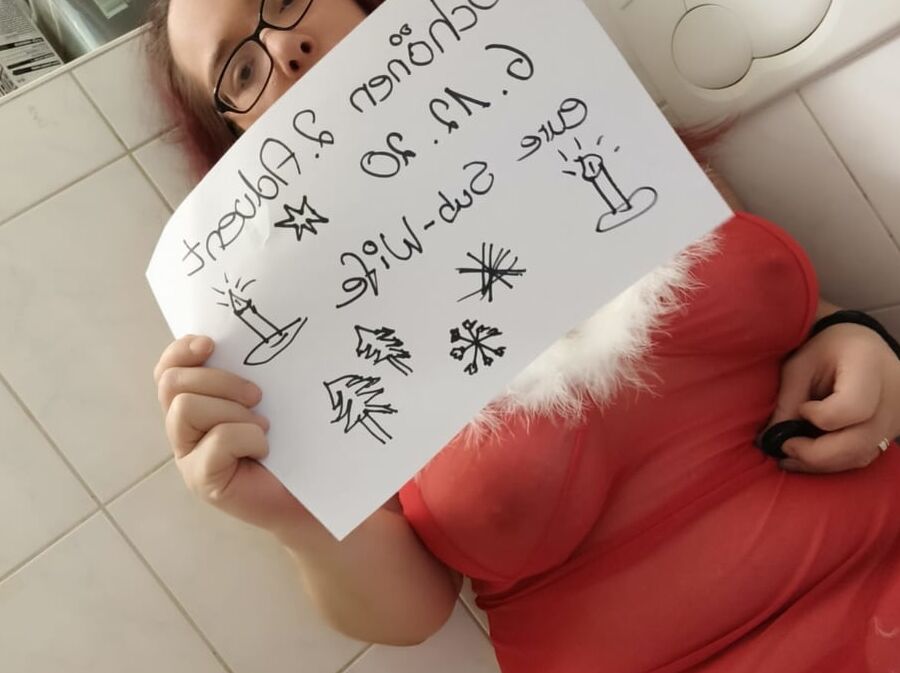 Schönen 2. Advent
6. 12. 20
Eure
Sub-Wife